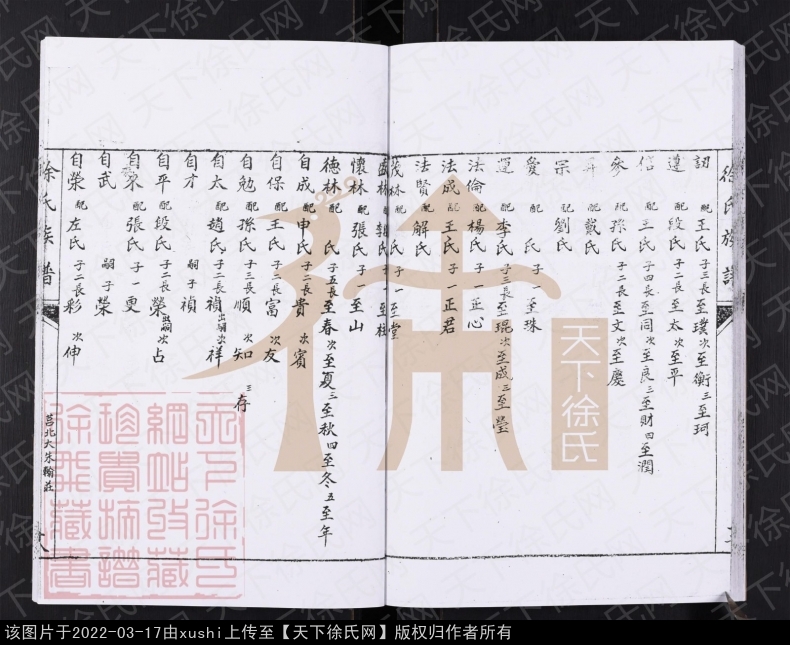 徐氏族譜
訒 配王氏 子三長至璞 次至衡 三至珂
遵 配段氏 子二長至太 次至平
信 配王氏 子四長至同 次至良 三至財 四至潤
參 配孫氏 子二長至文 次至慶
配戴氏
宗 配劉氏
愛 配 氏 子一至珠
運 配李氏 子三長至琨 次至成 三至瑩
法倫 配楊氏 子一正心
法成 配王氏 子一正君
法賢 配解氏
茂林 配 氏 子一至堂
盛林 配 氏 子一至桂
懷林 配張氏 子一至山
德林 配 氏 子五長至春 次至夏 三至秋 四至冬 五至年
自成 配申氏 子二長貴 次賓
自保 配王氏 子二長富 次友
自勉 配孫氏 子三長順 次知 三存
自太 配趙氏 子二長禎出嗣 次祥
自才 嗣子禎
自平 配段氏 子二長榮出嗣 次占
自 配張氏 子一更
自武 嗣子榮
自榮 配左氏 子二長彩 次伸
徐氏族譜
莒北大朱翰莊
天下徐氏
天下徐氏網站收藏珍貴摘譜徐飛藏書
天下徐氏网
该图片于2022-03-17由xushi上传至【天下徐氏网】版权归作者所有